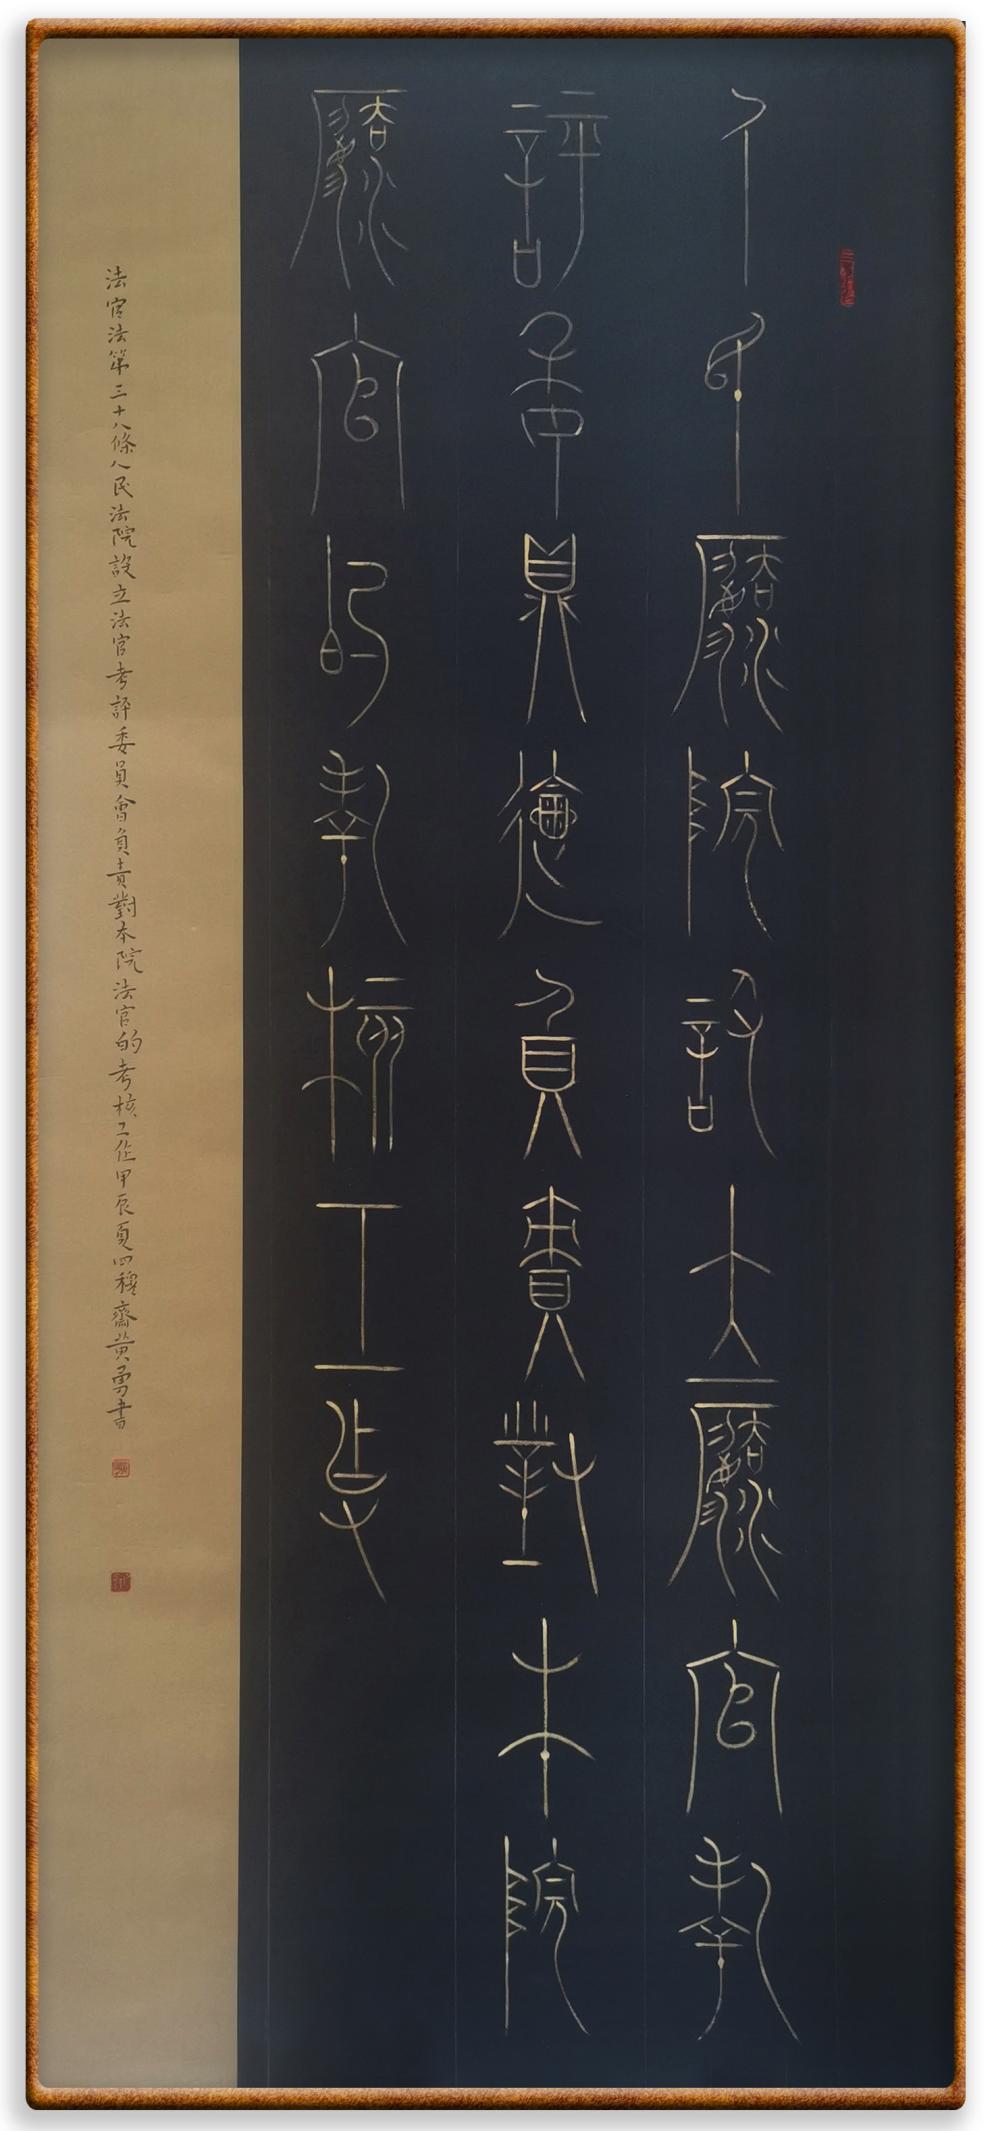 人民法院設立法官考
評委員會負責對本院
法官的考核工作
法官法第三十八條人民法院設立法官考評委員會負責對本院法官的考核工作甲辰夏四穆齋黄勇書